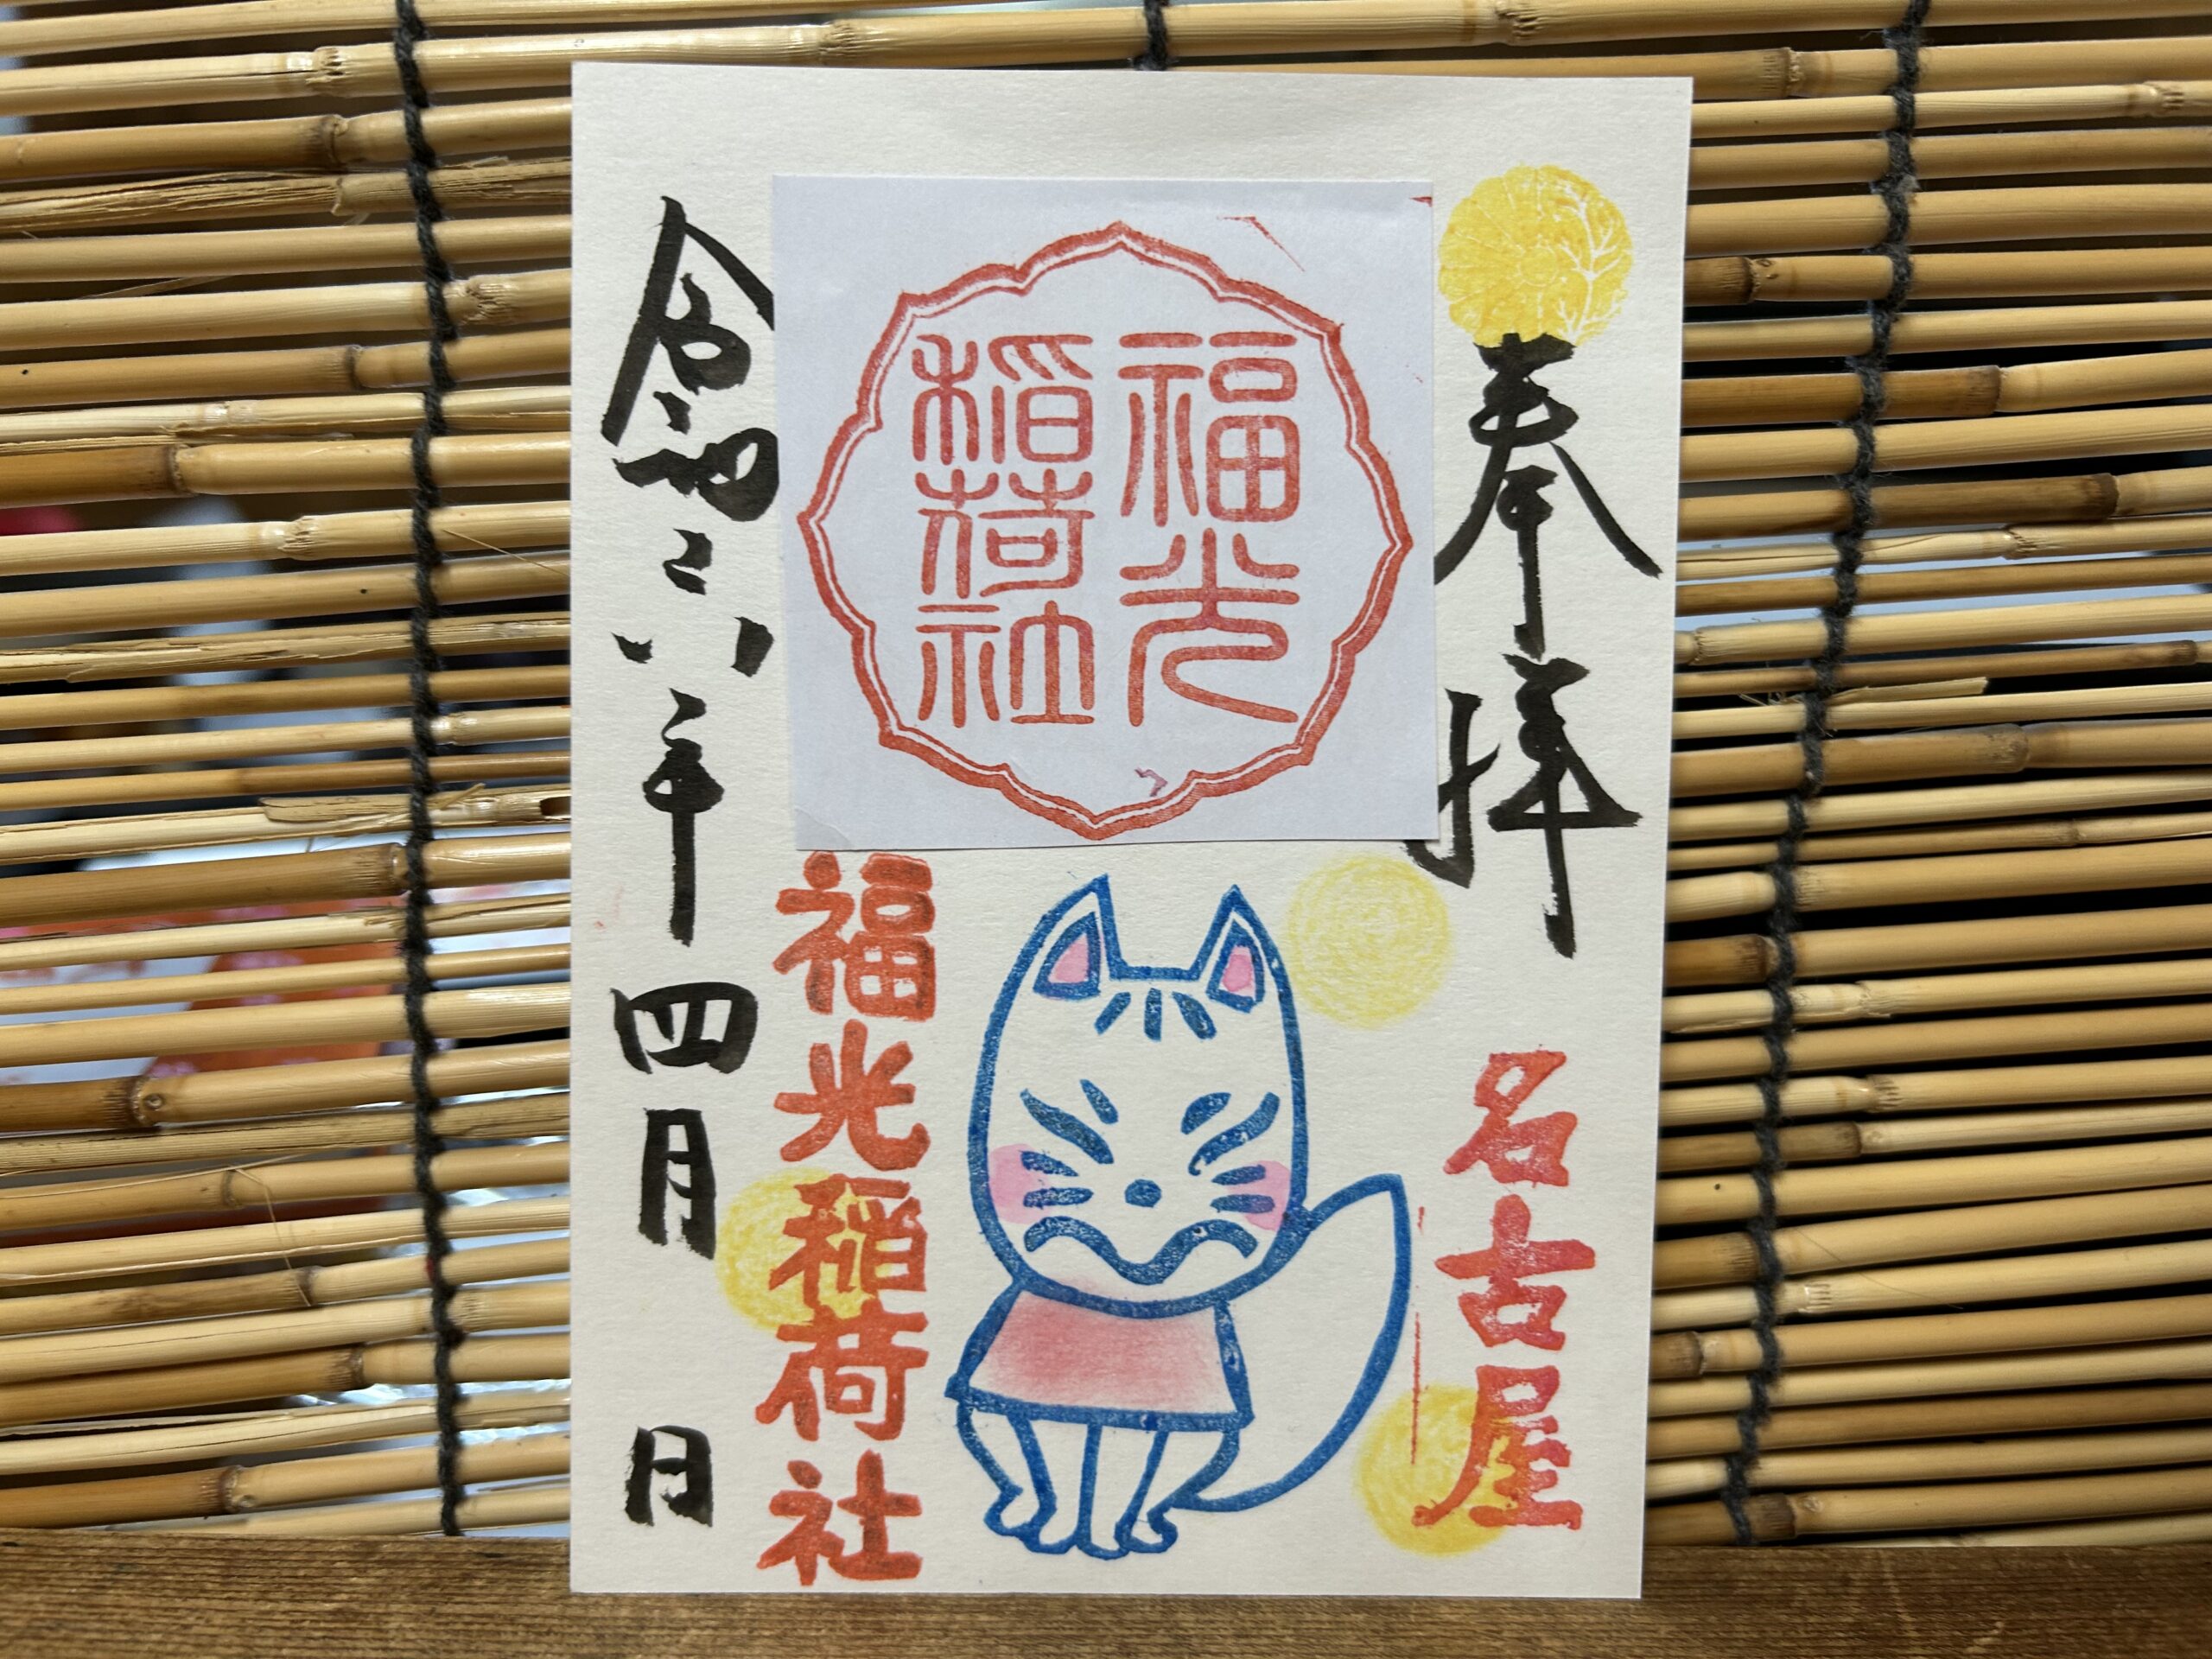 奉拝
名古屋
福光
稲荷社
福光稲荷社
令和六年四月　日